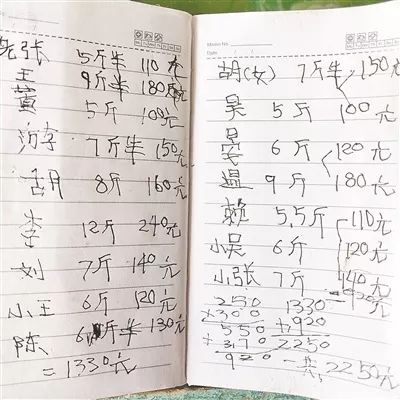 老张 5斤半 110元
王 9斤半 180元
董 5斤 100元
7斤半 150元
胡 8斤 160元
李 12斤 240元
刘 7斤 140元
小王 6斤 120元
陈 6斤半 130元
=1330元
Memo No.
Date
胡(女) 7斤半 150元
吴 5斤 100元
6斤 120元
温 9斤 180元
赖 5.5斤 110元
小吴 6斤 120元
小张 7斤 140元
=920元
250 1330
+300 +920
550 2250
+370
920 一共: 2250元